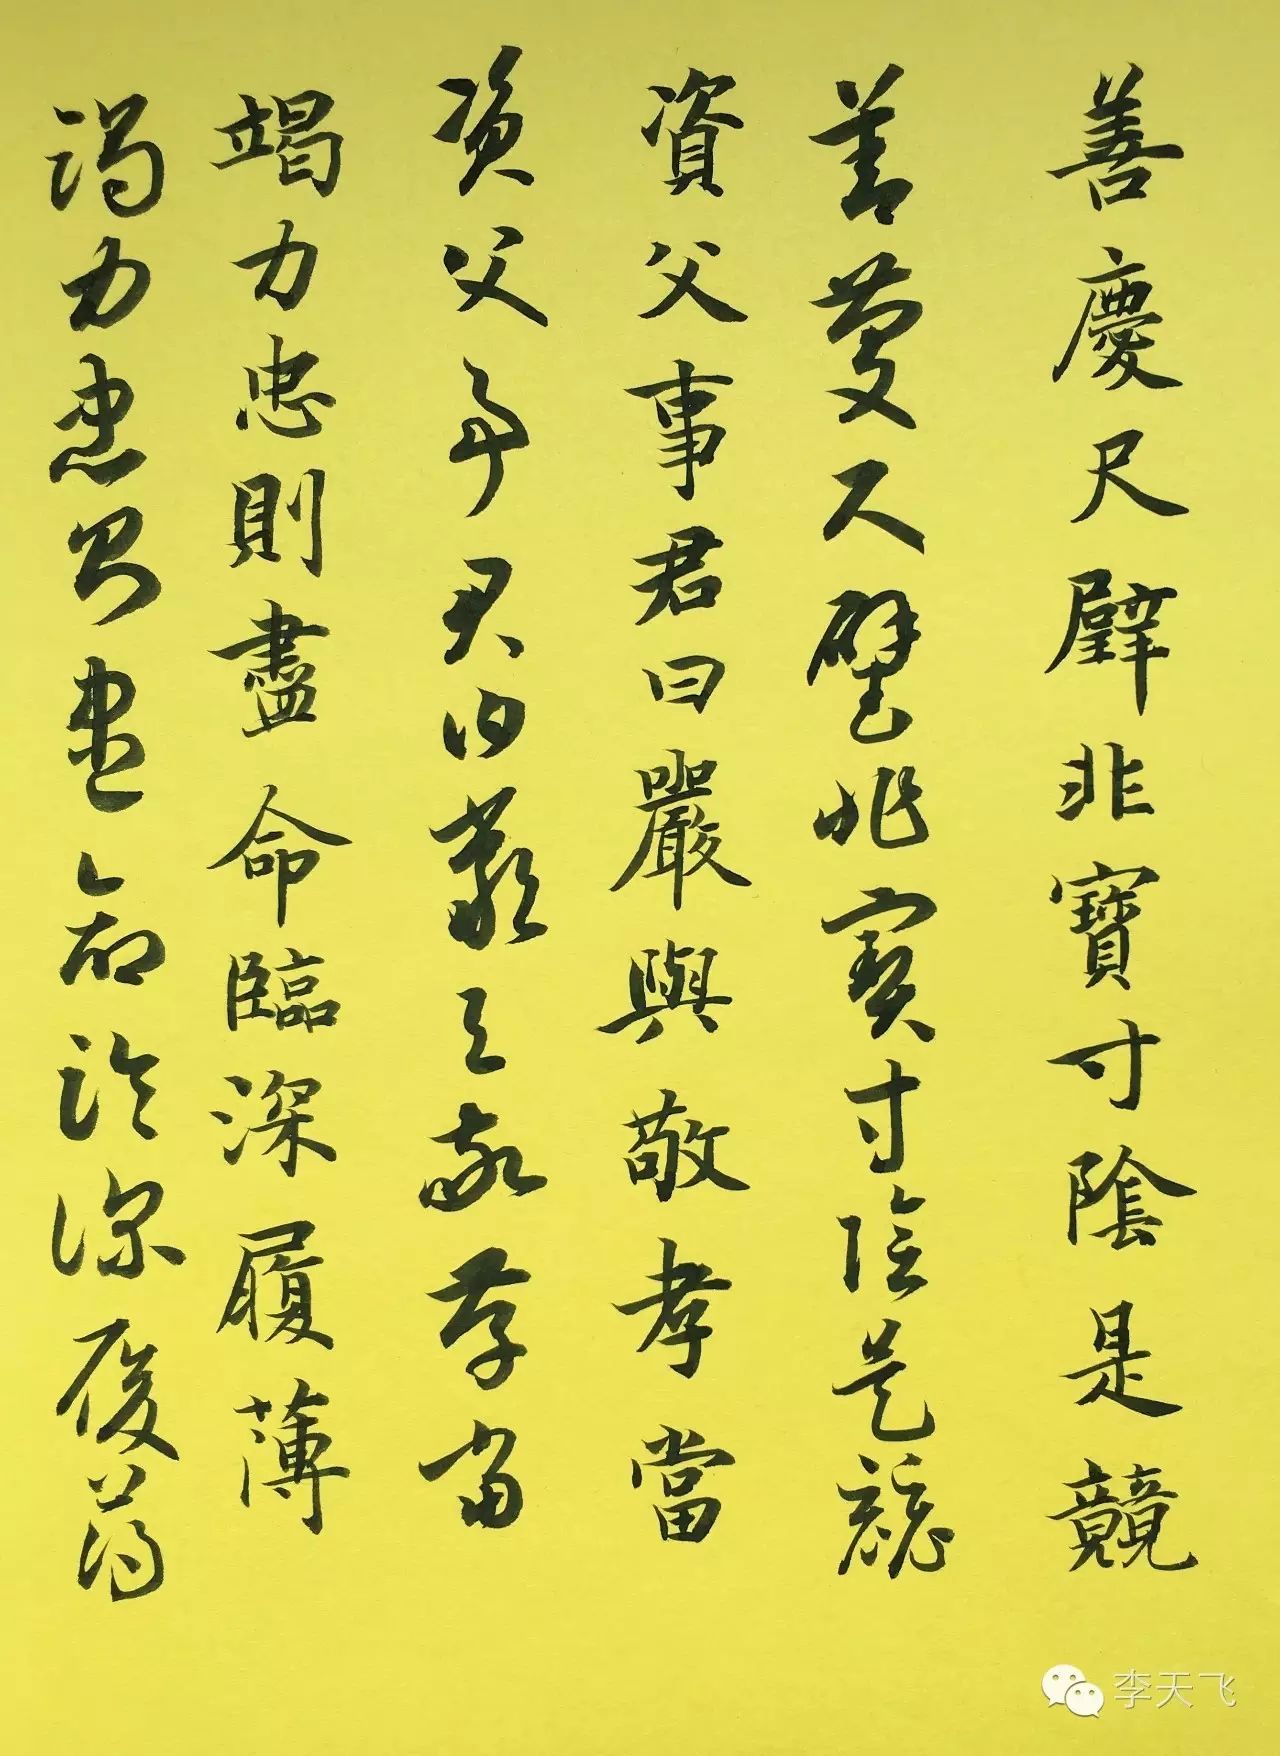 善慶尺璧非寶寸陰是競
善慶尺璧非寶寸陰是競
資父事君曰嚴與敬孝當
資父事君曰嚴與敬孝當
竭力忠則盡命臨深履薄
竭力忠則盡命臨深履薄
李天飞